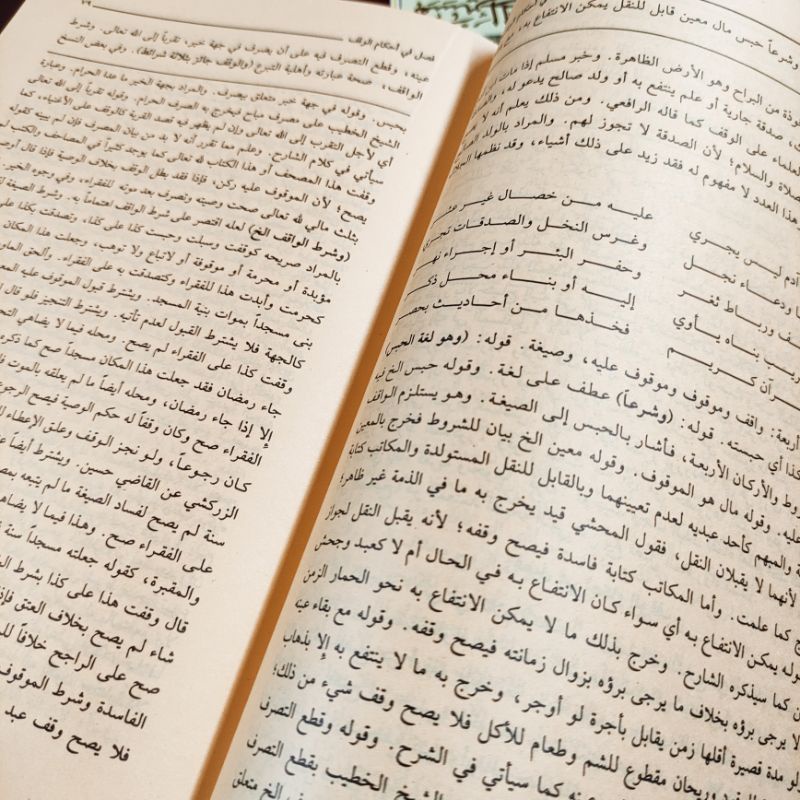 وشرعاً حبس مال معين قابل للنقل يمكن الانتفاع به
من البراح وهو الأرض الظاهرة. وخبر مسلم إذا مات
صدقة جارية أو علم ينتفع به أو ولد صالح يدعو له،
العلماء على الوقف كما قاله الرافعي. ومن ذلك يعلم أنه لا
والسلام؛ لأن الصدقة لا تجوز لهم. والمراد بالولد
هذا العدد لا مفهوم له فقد زيد على ذلك أشياء، وقد نظمها
آدم ليس يجري عليه من خصال غير
ودعاء نجل وغرس النخل والصدقات تجري
ورباط ثغر وحفر البئر أو إجراء نهر
بناه يأوي إليه أو بناء محل ذكر
كريم فخذها من أحاديث بحصر
أربعة: واقف وموقوف وموقوف عليه، وصيغة. قوله: (وهو لغة الحبس)
كذا أي حبسته. قوله: (وشرعاً) عطف على لغة. وقوله حبس الخ فيه
والأركان الأربعة، فأشار بالحبس إلى الصيغة. وهو يستلزم الواقف
عليه. وقوله مال هو الموقوف. وقوله معين الخ بيان للشروط فخرج بالمعين
والمبهم كأحد عبديه لعدم تعيينهما وبالقابل للنقل المستولدة والمكاتب كتابة
لأنهما لا يقبلان النقل، فقول المحشي قيد يخرج به ما في الذمة غير ظاهر؛
كما علمت. وأما المكاتب كتابة فاسدة فيصح وقفه؛ لأنه يقبل النقل لجواز
يمكن الانتفاع به أي سواء كان الانتفاع به في الحال أم لا كعبد وجحش
كما سيذكره الشارح. وخرج بذلك ما لا يمكن الانتفاع به نحو الحمار الزمن
لا يرجى برؤه بخلاف ما يرجى برؤه بزوال زمانته فيصح وقفه. وقوله مع بقاء عينه
ولو مدة قصيرة أقلها زمن يقابل بأجرة لو أوجر، وخرج به ما لا ينتفع به إلا بذهاب
وريحان مقطوع للشم وطعام للأكل فلا يصح وقف شيء من ذلك؛
كما سيأتي في الشرح. وقوله وقطع التصرف
الشيخ الخطيب بقطع التصرف
الخ متعلق
فصل في أحكام الوقف
عينه، وقطع التصرف فيه على أن يصرف في جهة خير، تقرباً إلى الله تعالى. وشرط
الواقف، صحة عبارته وأهلية التبرع (والوقف جائز بثلاثة شرائط). وفي بعض النسخ
بحبس. وقوله في جهة خير متعلق بيصرف. والمراد بجهة الخير ما عدا الحرام. وعبارة
الشيخ الخطيب على مصرف مباح فيخرج به الصرف الحرام. وقوله تقرباً إلى الله تعالى
أي لأجل التقرب إلى الله تعالى وإن لم يظهر فيه قصد القربة كالوقف على الأغنياء، كما
سيأتي في كلام الشارح. وعلم مما تقرر أنه لا بد من بيان المصرف فإن لم يبينه كقوله
وقفت هذا المصحف أو هذا الكتاب لله تعالى كما يوجد كثيراً في المصاحف والكتب لم
يصح؛ لأن الموقوف عليه ركن، فإذا فقد بطل الوقف بخلاف الوصية فإذا قال
بثلث مالي لله تعالى صحت وصيته وتصرف بعد موته للفقراء، وفي وجوه الخير.
(وشرط الواقف الخ) لعله اقتصر على شرط الواقف اهتماماً به. وشرط الصيغة
بالمراد صريحه كوقفت وسبلت وحبست كذا على كذا، وتصدقت بكذا على
محرمة أو موقوفة أو لاتباع ولا توهب، وجعلت هذا المكان
كحرمت وأبدت هذا للفقراء وكتصدقت به على الفقراء. وألحق
بنى مسجداً بموات بنية المسجد. ويشترط قبول الموقوف عليه
كالجهة فلا يشترط القبول لعدم تأتيه. ويشترط التنجيز فلو قال
وقفت كذا على الفقراء لم يصح. ومحله فيما لا يضاهي
جاء رمضان فقد جعلت هذا المكان مسجداً صح كما ذكره
إلا إذا جاء رمضان، ومحله أيضاً ما لم يعلقه بالموت
الفقراء صح وكان وقفاً له حكم الوصية فيصح الرجوع
كان رجوعاً، ولو نجز الوقف وعلق الإعطاء
الزركشي عن القاضي حسين. ويشترط أيضاً
سنة لم يصح لفساد الصيغة ما لم يتبعه
على الفقراء صح. وهذا فيما لا يضاهي
والمقبرة، كقوله جعلته مسجداً سنة
قال وقفت هذا على كذا بشرط
شاء لم يصح بخلاف العتق
صح على الراجح خلافاً
الفاسدة وشرط الموقوف
فلا يصح وقف عبد